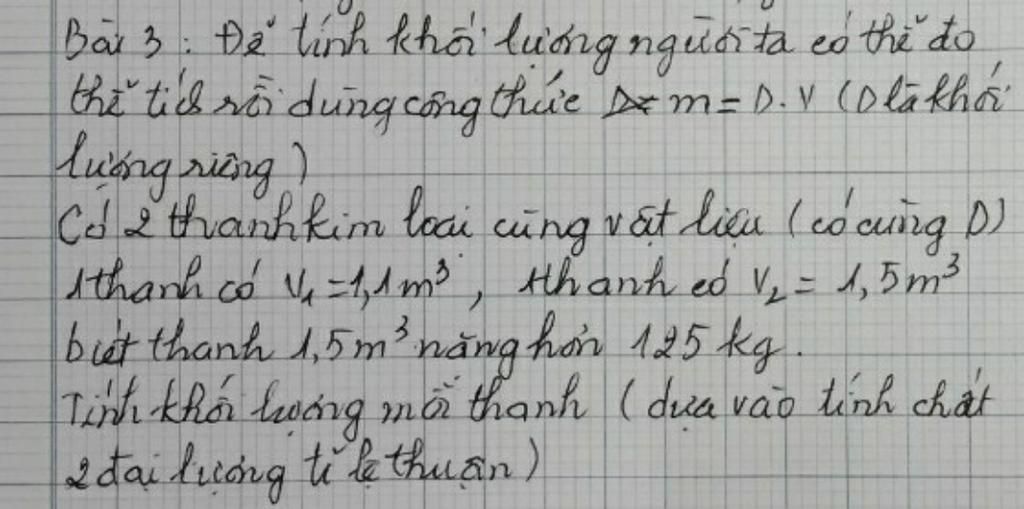 Bài 3: Để tính khối lượng người ta có thể đo
thể tích rồi dùng công thức m = D.V (D là khối
lượng riêng)
Có 2 thanh kim loại cùng vật liệu (có cùng D)
1 thanh có V₁ = 1,1m³, 1 thanh có V₂ = 1,5m³
biết thanh 1,5m³ nặng hơn 125 kg.
Tính khối lượng mỗi thanh (dựa vào tính chất
2 đại lượng tỉ lệ thuận)